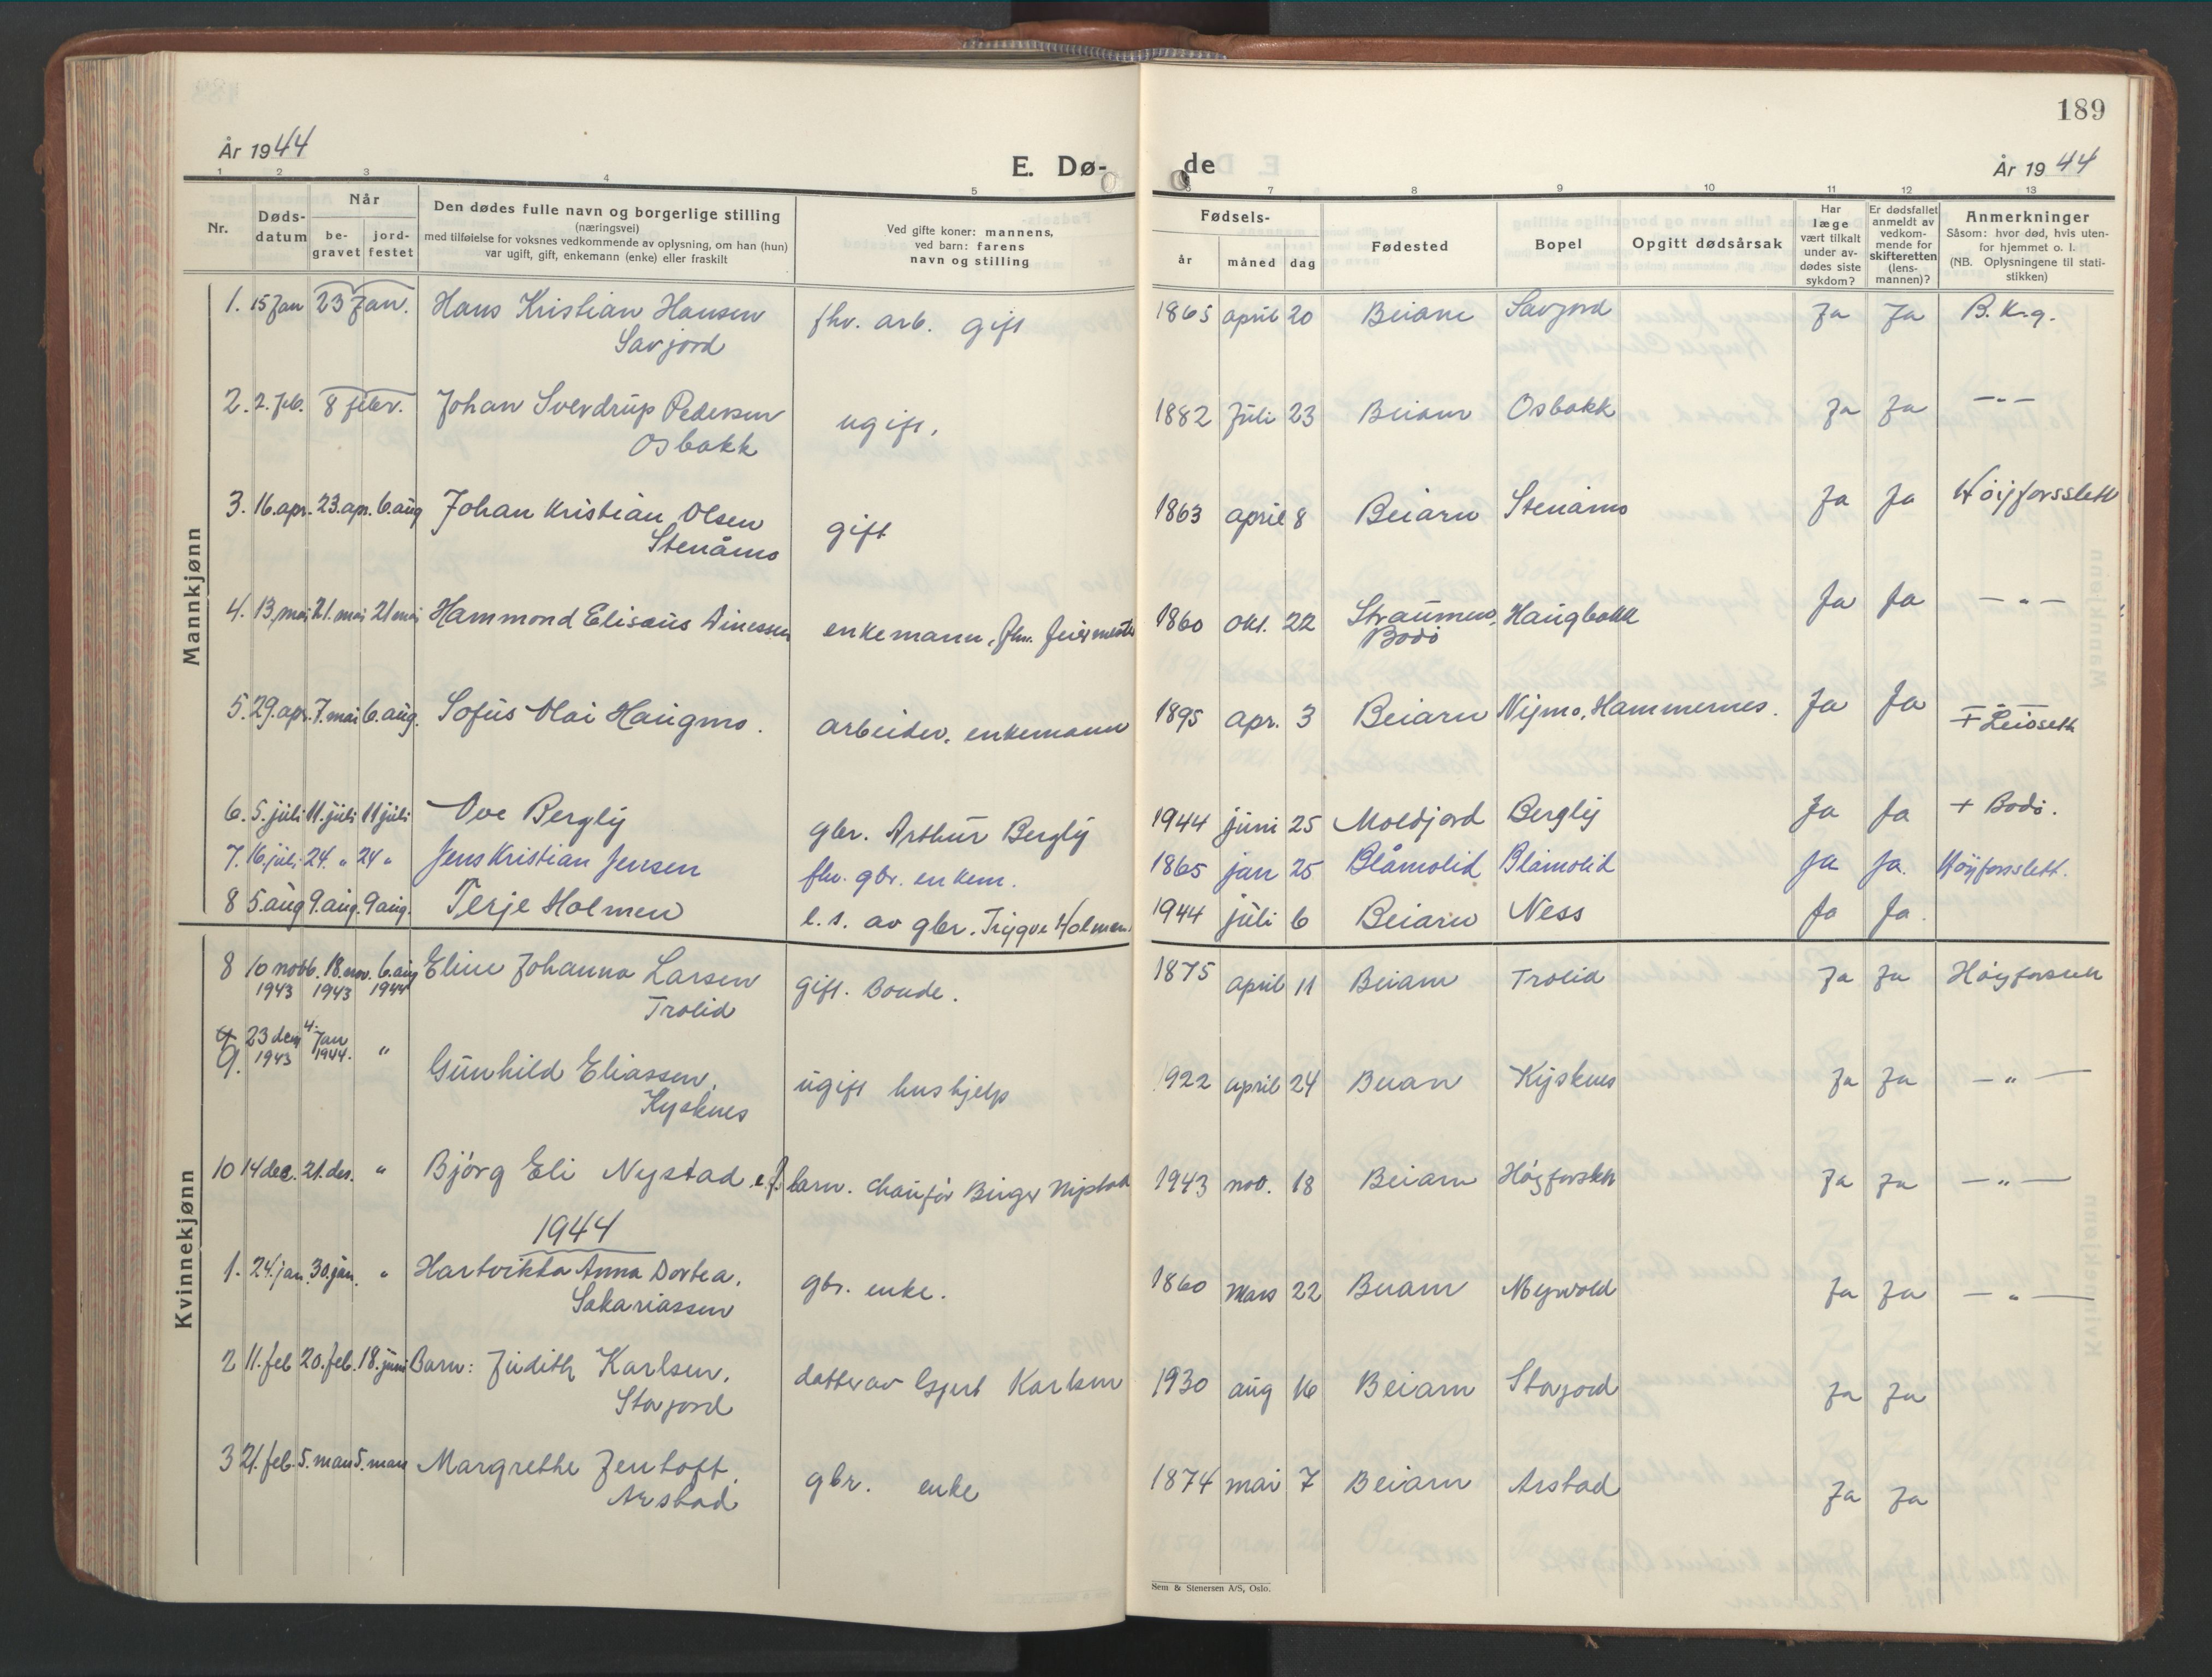 189
År 1944
E. Dø-
de
År 1944
1 2 3 4 5 6 7 8 9 10 11 12 13
Nr.
Døds-
datum
Når
be-
gravet
jord-
festet
Den dødes fulle navn og borgerlige stilling
(næringsvei)
med tilføielse for voksnes vedkommende av oplysning, om han (hun)
var ugift, gift, enkemann (enke) eller fraskilt
Ved gifte koner: mannens,
ved barn: farens
navn og stilling
Fødsels-
år måned dag
Fødested
Bopel
Opgitt dødsårsak
Har
læge
vært tilkalt
under av-
dødes siste
sykdom?
Er dødsfallet
anmeldt av
vedkom-
mende for
skifteretten
(lens-
mannen)?
Anmerkninger
Såsom: hvor død, hvis uten-
for hjemmet o. l.
(NB. Oplysningene til stati-
stikken)
Mannkjønn
1. 15 Jan 23 Jan. Hans Kristian Hansen fhv. arb. gift 1865 april 20 Beiarn Savjord Ja Ja B.K.g.
Savjord
2. 2. feb. 8 febr. Johan Sverdrup Pedersen ugift. 1882 Juli 23 Beiarn Osbakk Ja Ja —"—
Osbakk
3. 16. apr. 23. apr. 6. aug Johan Kristian Olsen gift 1863 april 8 Beiarn Stenåmo Ja Ja Høigforsslett
Stenåmo
4. 13. mai 21. mai 21 mai Hammond Elisæus Dinessen enkemann, fhv. feiermester 1860 okt. 22 Straumen, Haugbakk Ja Ja —"—
Bodø
5. 29. apr. 7. mai 6. aug. Sofus Olai Haugmo. arbeider, enkemann 1895 apr. 3 Beiarn Nymo, Hammernes. Ja Ja —"—
+ Leiåseth
6. 5. juli 11. juli 11 juli Ove Bergly gbr. Arthur Bergly 1944 juni 25 Moldjord Bergly Ja Ja + Bodø.
7. 16. juli 24. " 24 " Jens Kristian Jensen fhv. gbr. enkem. 1865 jan 25 Blåmolid Blåmolid Ja Ja. Høgforsslett.
8 5. aug 9. aug. 9 aug. Terje Holmen e. s. av gbr. Trygve Holmen 1944 juli 6 Beiarn Ness Ja Ja
Kvinnekjønn
8 10 nobb. 18. nov. 6. aug Eline Johanna Larsen gift. Bonde. 1875 april 11 Beiarn Trolid Ja Ja Høgforslett
1943 1943 1944 Trolid
9. 23 des 4. Jan "
1943 1944.
Gunhild Eliassen, ugift hushjelp 1922 april 24 Beiarn Kjsknes Ja Ja —"—
Kysknes
10 14 des. 21. des. " Bjørg Eli Nystad e.f. barn. chaufør Birger Nystad 1943 nov. 18 Beiarn Høgforslett Ja Ja —"—
1944
1. 24. jan. 30. jan. " Hartvikka Anna Dortea, gbr. enke. 1860 Mars 22 Beiarn Myrvold Ja Ja —"—
Sakariassen
2 11. feb 20. feb. 18. juni Barn: Judith Karlsen, datter av Gjert Karlsen 1930 aug 16 Beiarn Storjord Ja Ja
Storjord
3 21. feb. 5. mars 5. mars Margrethe Jentoft, gbr. enke 1874 mai 7 Beiarn Arstad Ja Ja
Arstad
Sem & Stenersen A/S, Oslo.